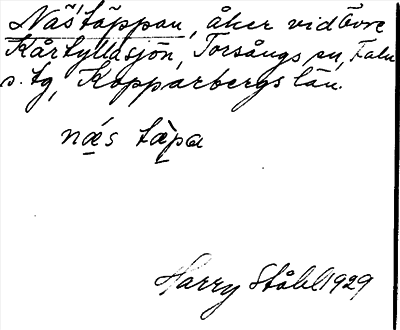 Näs'täppan, åker vid Övre
Kårtyllasjön, Torsångs sn, Falu
s. tg, Kopparbergs län.
næ´s tæ`pa
Harry Ståhl 1929